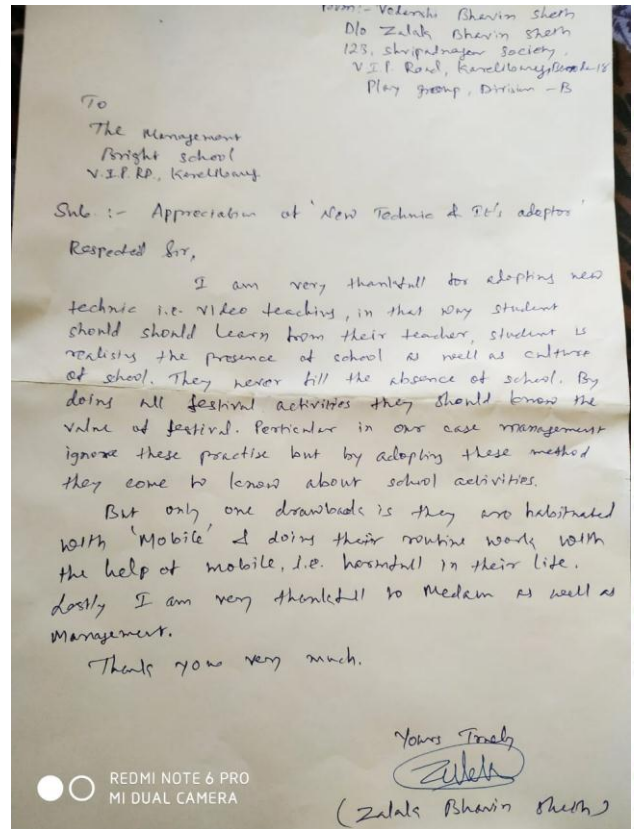 From:- Vedanshi Bhavin Sheth
D/o Zalak Bhavin Sheth
123, Shripatnagar Society,
V.I.P. Road, Karelibaug, Baroda-18
Play group, Division - B
To
The Management
Bright School
V.I.P. RD., Karelibaug
Sub :- Appreciation of 'New Technic & It's adoptor'
Respected Sir,
I am very thankfull for adopting new
technic i.e. video teaching, in that way student
should should learn from their teacher, student is
realising the presence of school as well as culture
of shool. They never fill the absence of school. By
doing all festival activities they should know the
value of festival. Perticular in our case management
ignore these practise but by adopting these method
they come to know about school activities.
But only one drawback is they are habituated
with 'Mobile' & doing their routine work with
the help of mobile, i.e. harmfull in their life.
Lastly I am very thankfull to Medam as well as
Management.
Thank you very much.
Yours Truely
Zalak
(Zalak Bhavin Sheth)
REDMI NOTE 6 PRO
MI DUAL CAMERA